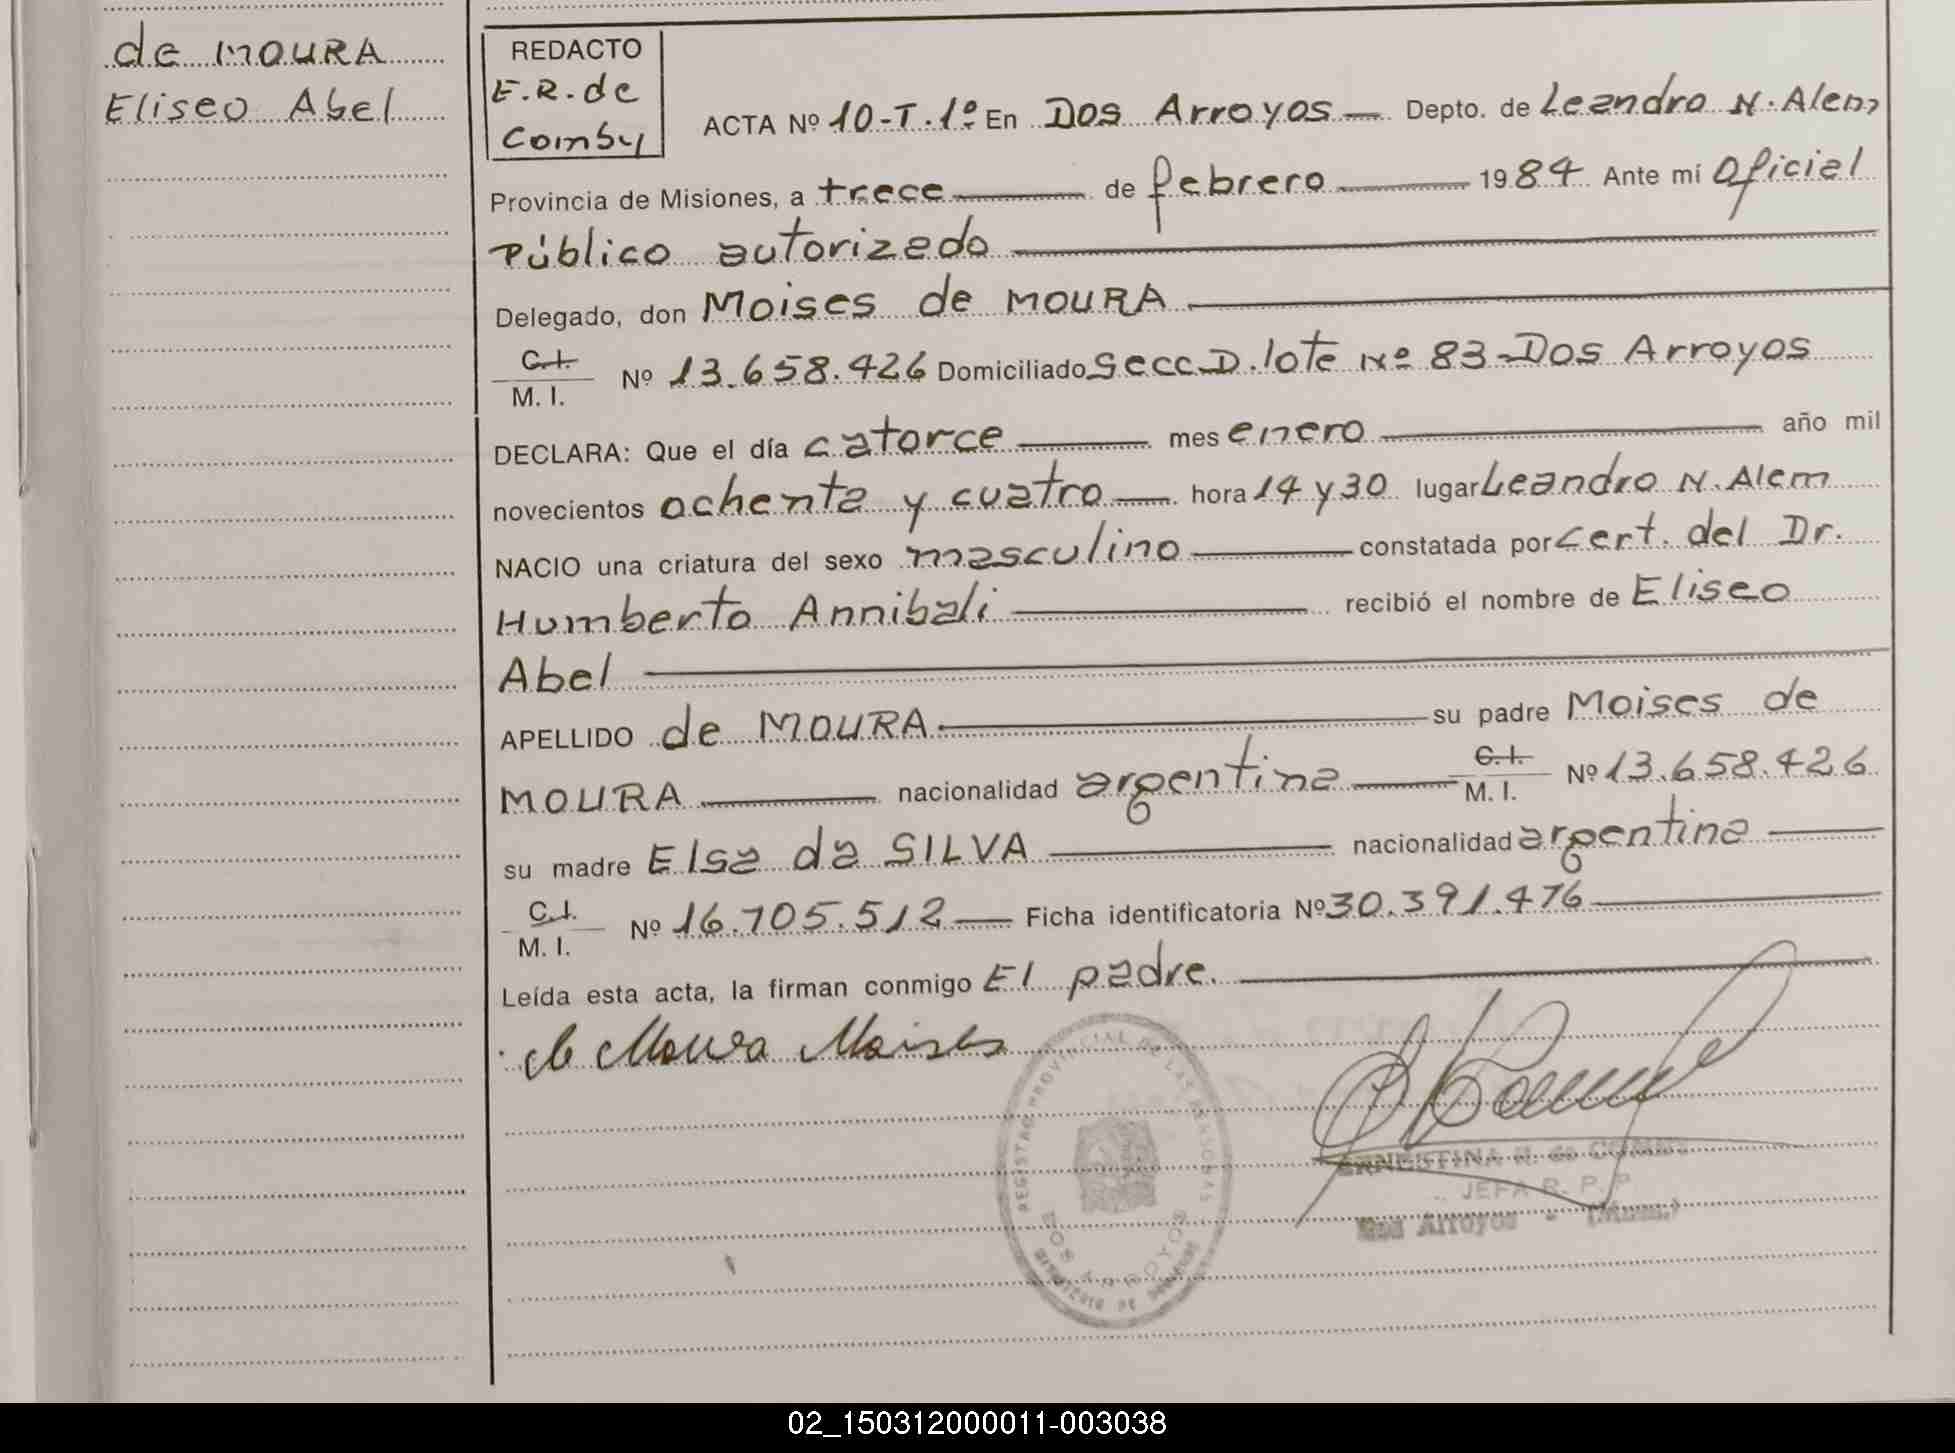 de MOURA
Eliseo Abel
REDACTO
E.R. de
Comby
ACTA Nº 10-T.1º En Dos Arroyos — Depto. de Leandro N. Alem,
Provincia de Misiones, a trece de febrero 1984 Ante mí Oficial
Público autorizado
Delegado, don Moises de MOURA
C.I.
M. I. Nº 13.658.426 Domiciliado Secc. D. lote Nº 83-Dos Arroyos
DECLARA: Que el día catorce mes enero año mil
novecientos ochenta y cuatro hora 14 y 30 lugar Leandro N. Alem
NACIO una criatura del sexo masculino constatada por cert. del Dr.
Humberto Annibali recibió el nombre de Eliseo
Abel
APELLIDO de MOURA su padre Moises de
MOURA nacionalidad argentina C.I. M. I. Nº 13.658.426
su madre Elsa da SILVA nacionalidad argentina
C.I.
M. I. Nº 16.705.512 Ficha identificatoria Nº 30.391.476
Leída esta acta, la firman conmigo El padre.
de Moura Moises
REGISTRO PROVINCIAL DE LAS PERSONAS
DOS ARROYOS
ERNESTINA R. de COMBY
JEFA R. P. P
Dos Arroyos - (Mnes.)
02_150312000011-003038